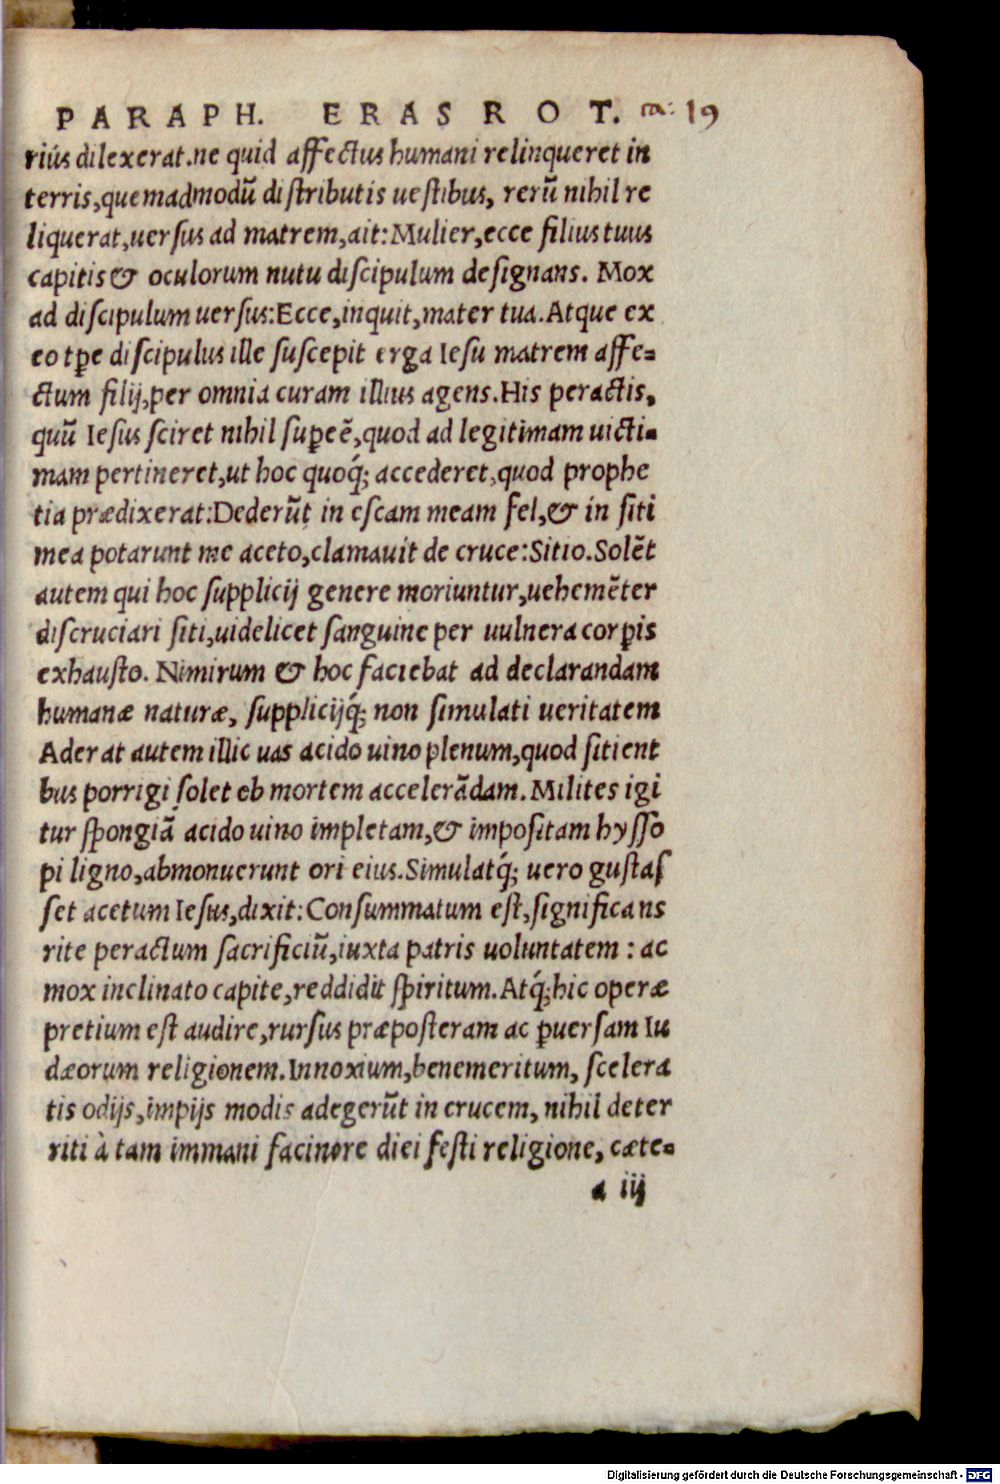 PARAPH. ERAS ROT. 19
riús dilexerat.ne quid affectus humani relinqueret in
terris,quemadmodū distributis uestibus, rerū nihil re
liquerat,uersus ad matrem,ait:Mulier,ecce filius tuus
capitis & oculorum nutu discipulum designans. Mox
ad discipulum uersus:Ecce,inquit,mater tua.Atque ex
eo tꝑe discipulus ille suscepit erga Iesu matrem affe-
ctum filij,per omnia curam illius agens.His peractis,
quū Iesus sciret nihil suꝑeē,quod ad legitimam uicti-
mam pertineret,ut hoc quoq́; accederet,quod prophe
tia prædixerat:Dederūt in escam meam fel,& in siti
mea potarunt me aceto,clamauit de cruce:Sitio.Solēt
autem qui hoc supplicij genere moriuntur,uehemēter
discruciari siti,uidelicet sanguine per uulnera corꝑis
exhausto. Nimirum & hoc faciebat ad declarandam
humanæ naturæ, supplicijq́; non simulati ueritatem
Aderat autem illic uas acido uino plenum,quod sitient
bus porrigi solet ob mortem accelerādam.Milites igi
tur spongiā acido uino impletam,& impositam hysso
pi ligno,abmonuerunt ori eius.Simulatq́; uero gustas
set acetum Iesus,dixit:Consummatum est,significans
rite peractum sacrificiū,iuxta patris uoluntatem : ac
mox inclinato capite,reddidit spiritum.Atq́;hic operæ
pretium est audire,rursus præposteram ac ꝑuersam Iu
dæorum religionem.Innoxium,benemeritum, scelera
tis odijs,impijs modis adegerūt in crucem, nihil deter
riti à tam immani facinore diei festi religione, cæte-
a iij
Digitalisierung gefördert durch die Deutsche Forschungsgemeinschaft - DFG